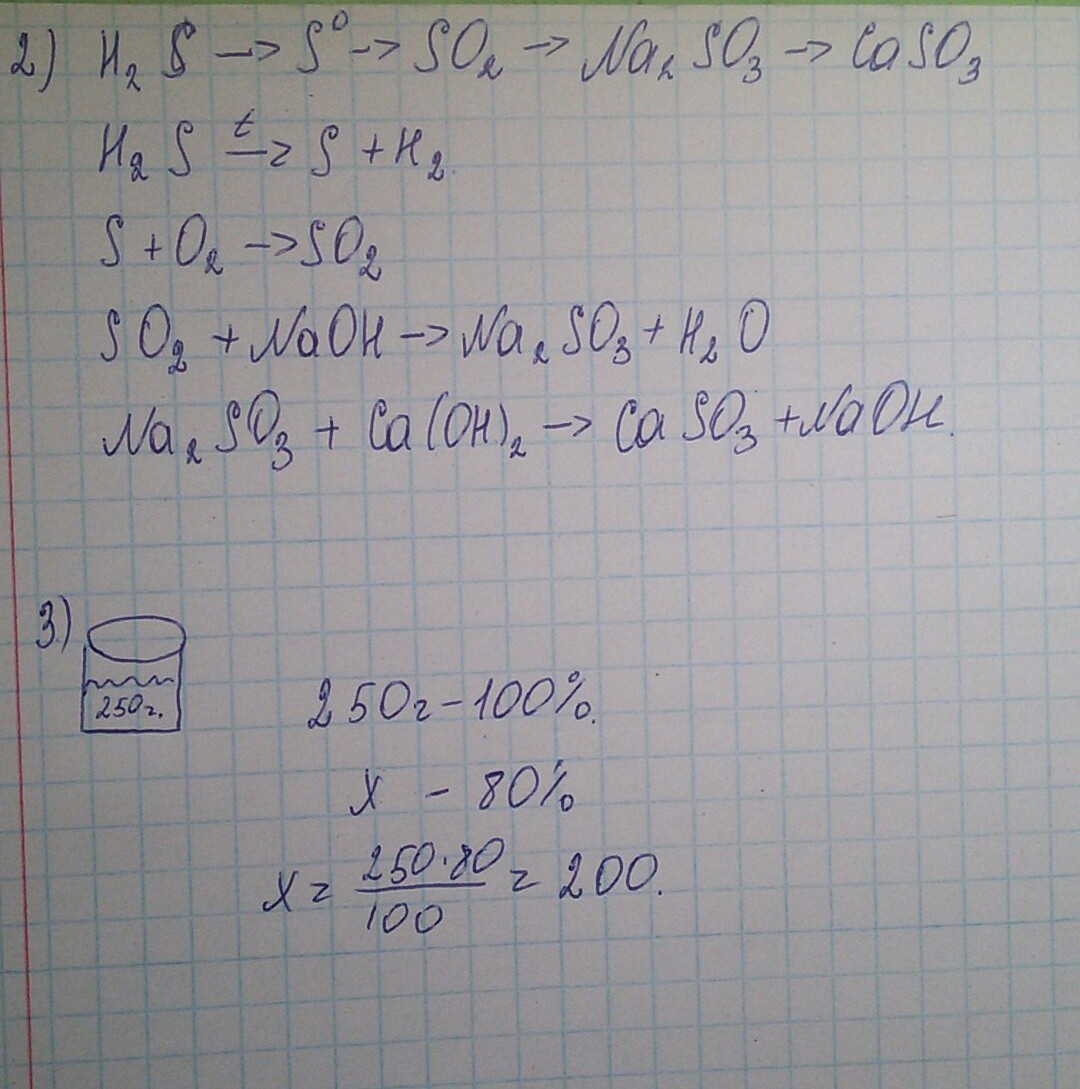 2) H₂S → S⁰ → SO₂ → Na₂SO₃ → CaSO₃
H₂S →ᵗ S + H₂.
S + O₂ → SO₂
SO₂ + NaOH → Na₂SO₃ + H₂O
Na₂SO₃ + Ca(OH)₂ → CaSO₃ + NaOH.
3)
250г.
250г – 100%.
x – 80%
x = 250·80/100 = 200.